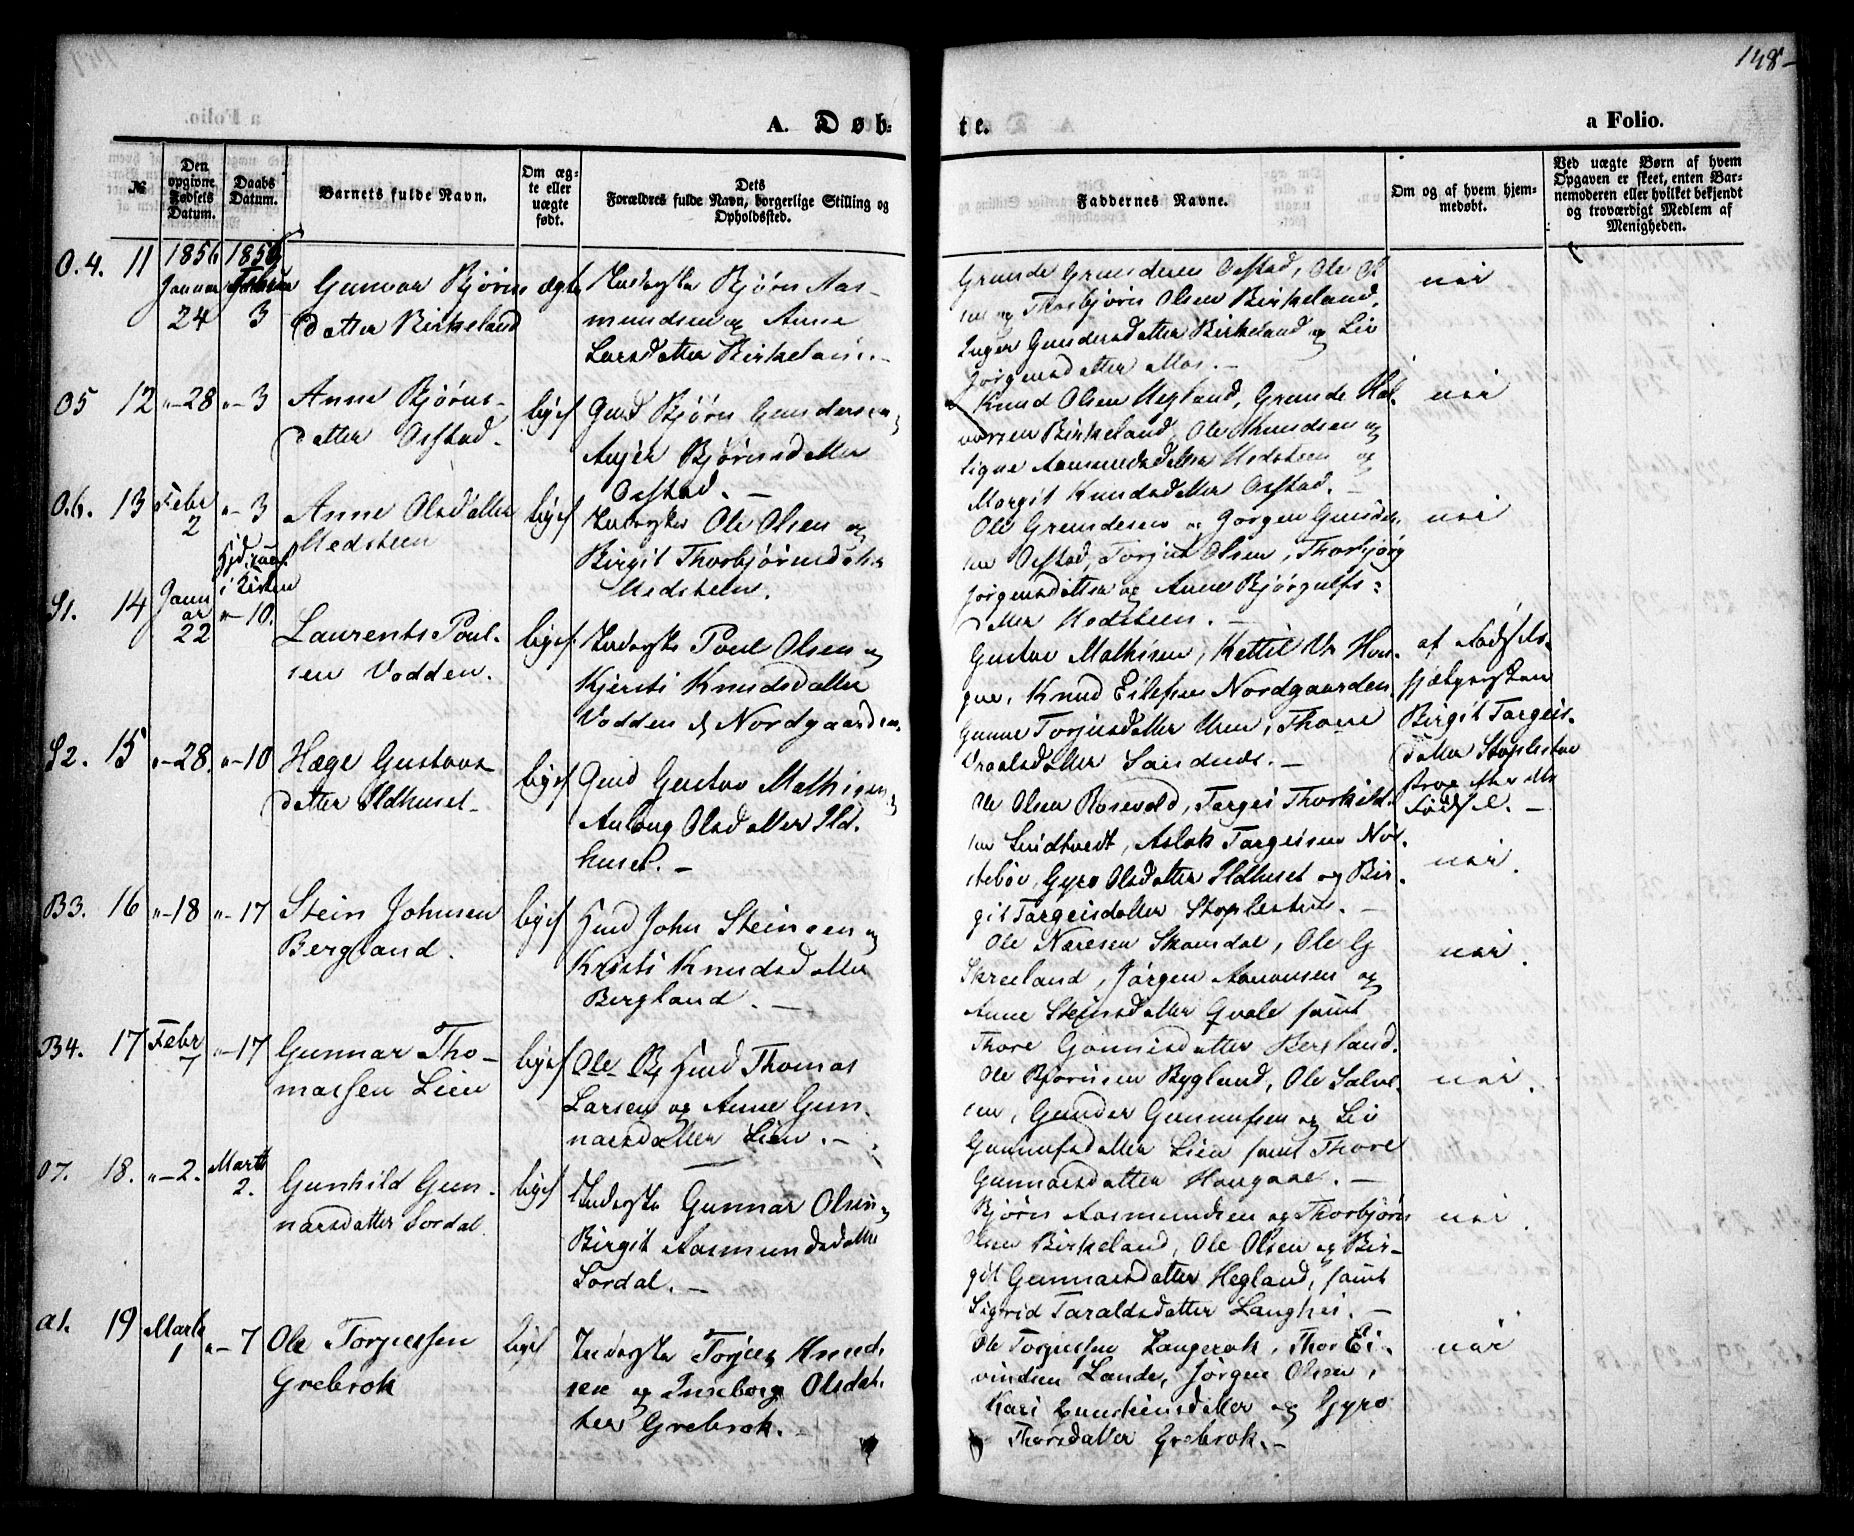 148
A. Døb-
te.
a Folio.
№
Den opgivne Fødsels Datum.
Daabs Datum.
Barnets fulde Navn.
Om ægte eller uægte født.
Dets Forældres fulde Navn, borgerlige Stilling og Opholdssted.
Faddernes Navne.
Om og af hvem hjemmedøbt.
Ved uægte Børn af hvem Opgaven er skeet, enten Barnemoderen eller hvilket bekjendt og troværdigt Medlem af Menigheden.
O.4. 11 1856 Januar 24
1856 Februar 3
Gunvor Bjørns
datter Birkeland
ægte
Bjørn Aas-
mundsen og Anne
Larsdatter Birkeland.-
Grunde Grundesen Ofstad, Ole Ol
sen og Thorbjørn Olsen Birkeland,
Inger Gundersdatter Birkeland og Liv
Jørgensdatter Moe.-
nei
O5 12 "-28 "-3
Anne Bjørns-
datter Ofstad.
ligel
Gmd Bjørn Gundersen og
Bjørnsdatter
Ofstad.-
Knud Olsen Hegland, Grunde Hal-
vorsen Birkeland, Ole Knudsen og
Signe Aasmundsdatter Medsteen og
Margit Knudsdatter Ofstad.-
nei
O.6. 13 Febr 2 "-3
Anne Olsdatter
Medsteen
ligel
Ole Olsen og
Birgit Thorbjørnsdatter
Medsteen.
Ole Grundesen og Jørgen Gunder-
sen Ofstad, Torjus Olsen, Thorbjørg
Jørgensdatter og Anne Bjørgulfs-
datter Medsteen.-
nei
S1. 14 Januar 22
i Kirken
"-10.
Laurents Poul-
sen Vodden.
ligel.
Poul Olsen og
Kjersti Knudsdatter
Vodden af Nordgaarden.
Gustav Mathisen, Kettil
Knud Eilefsen Nordgaarden,
Gunne Torjusdatter Uren, Thone
Sandnes.-
af Fødsels-
hjælpersken
Birgit Targeis-
datter Stoplesteen
strax efter
Fødsel.-
S2. 15 "-28. "-10
Hæge Gustavs-
datter Ildhuset-
ligel
Gmd Gustav Mathisen og
Aslaug Olsdatter Ild-
huset.-
Ole Olsen Rosevold, Targei Thorkild-
sen Lindtveit, Aslak Targeisen
Gyro Olsdatter Ildhuset og Bir-
git Targeisdatter Stoplesteen.-
nei.
B3. 16 "-18 "-17
Stein Johnsen
Bergland.
ligel
John Steinsen og
Kristi Knudsdatter
Bergland.-
Ole Næresen Skomdal, Ole G
Skreeland, Jørgen Aanonsen og
Anne Steinsdatter Qvale samt
Thore Gunnarsdatter Bergland.
nei.
B4. 17 Febr 7 "-17
Gunnar Tho-
massen Lien
ligel
Thomas
Larsen og Anne Gun-
narsdatter Lien.-
Ole Bjørnsen Bygland, Ole Salve-
sen, Gunder Gunnufsen og Liv
Gunnufsdatter Lien samt Thore
Gunnarsdatter Haugaae.-
nei.
O7. 18. "-2. Marts 2.
Gunhild Gun-
narsdatter Sordal
ligel
Gunnar Olsen og
Birgit Aasmundsdatter
Sordal.-
Bjørn Aasmundsen og Thorbjørn
Olsen Birkeland, Ole Olsen og Bir-
git Gunnarsdatter Hegland, samt
Sigrid Taraldsdatter Langhei.-
nei.
A1. 19 Marts 1 "-7
Ole Torjussen
Grebrok
ligel
Torjus Knud-
sen og Inseborg Olsdat-
ter Grebrok.-
Ole Torjussen Langerak, Thor Ei-
vindsen Lande, Jørgen Olsen,
Kari Gunsteinsdatter og Gyro
Thorsdatter Grebrok.-
nei